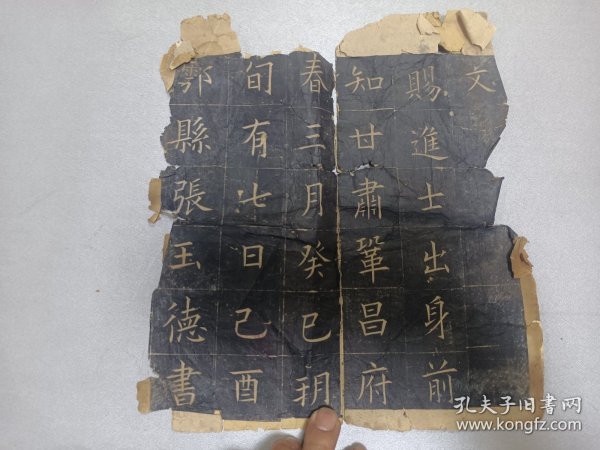 文
賜進士出身前
知甘肅鞏昌府
春三月癸巳玥
旬有七日己酉
鄠縣張玉德書
孔夫子旧书网
www.kongfz.com